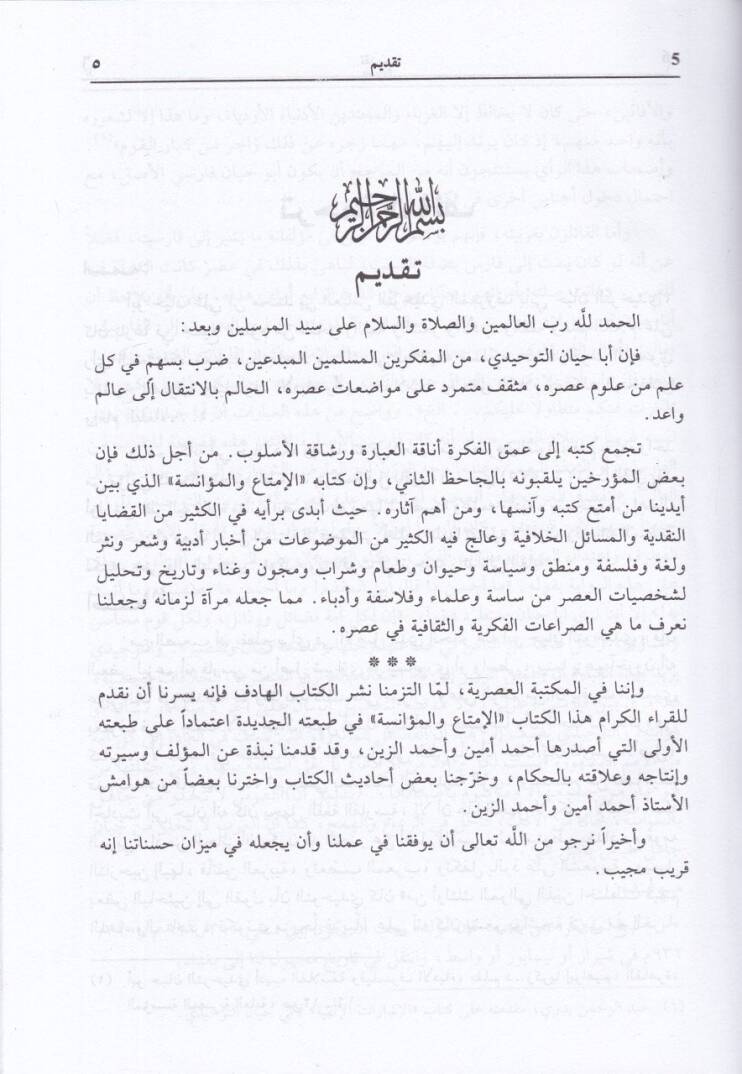 5 تقديم ٥
بسم الله الرحمن الرحيم
تقديم
الحمد لله رب العالمين والصلاة والسلام على سيد المرسلين وبعد:
فإن أبا حيان التوحيدي، من المفكرين المسلمين المبدعين، ضرب بسهم في كل
علم من علوم عصره، مثقف متمرد على مواضعات عصره، الحالم بالانتقال إلى عالم
واعد.
تجمع كتبه إلى عمق الفكرة أناقة العبارة ورشاقة الأسلوب. من أجل ذلك فإن
بعض المؤرخين يلقبونه بالجاحظ الثاني، وإن كتابه «الإمتاع والمؤانسة» الذي بين
أيدينا من أمتع كتبه وآنسها، ومن أهم آثاره. حيث أبدى برأيه في الكثير من القضايا
النقدية والمسائل الخلافية وعالج فيه الكثير من الموضوعات من أخبار أدبية وشعر ونثر
ولغة وفلسفة ومنطق وسياسة وحيوان وطعام وشراب ومجون وغناء وتاريخ وتحليل
لشخصيات العصر من ساسة وعلماء وفلاسفة وأدباء. مما جعله مرآة لزمانه وجعلنا
نعرف ما هي الصراعات الفكرية والثقافية في عصره.
***
وإننا في المكتبة العصرية، لمّا التزمنا نشر الكتاب الهادف فإنه يسرنا أن نقدم
للقراء الكرام هذا الكتاب «الإمتاع والمؤانسة» في طبعته الجديدة اعتماداً على طبعته
الأولى التي أصدرها أحمد أمين وأحمد الزين، وقد قدمنا نبذة عن المؤلف وسيرته
وإنتاجه وعلاقته بالحكام، وخرّجنا بعض أحاديث الكتاب واخترنا بعضاً من هوامش
الأستاذ أحمد أمين وأحمد الزين.
وأخيراً نرجو من الله تعالى أن يوفقنا في عملنا وأن يجعله في ميزان حسناتنا إنه
قريب مجيب.